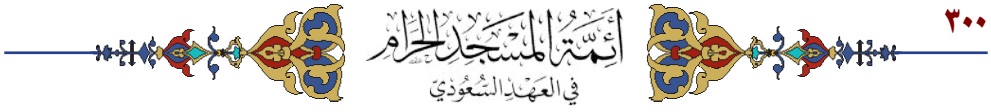 ٣٠٠
أئمة المسجد الحرام
في العهد السعودي